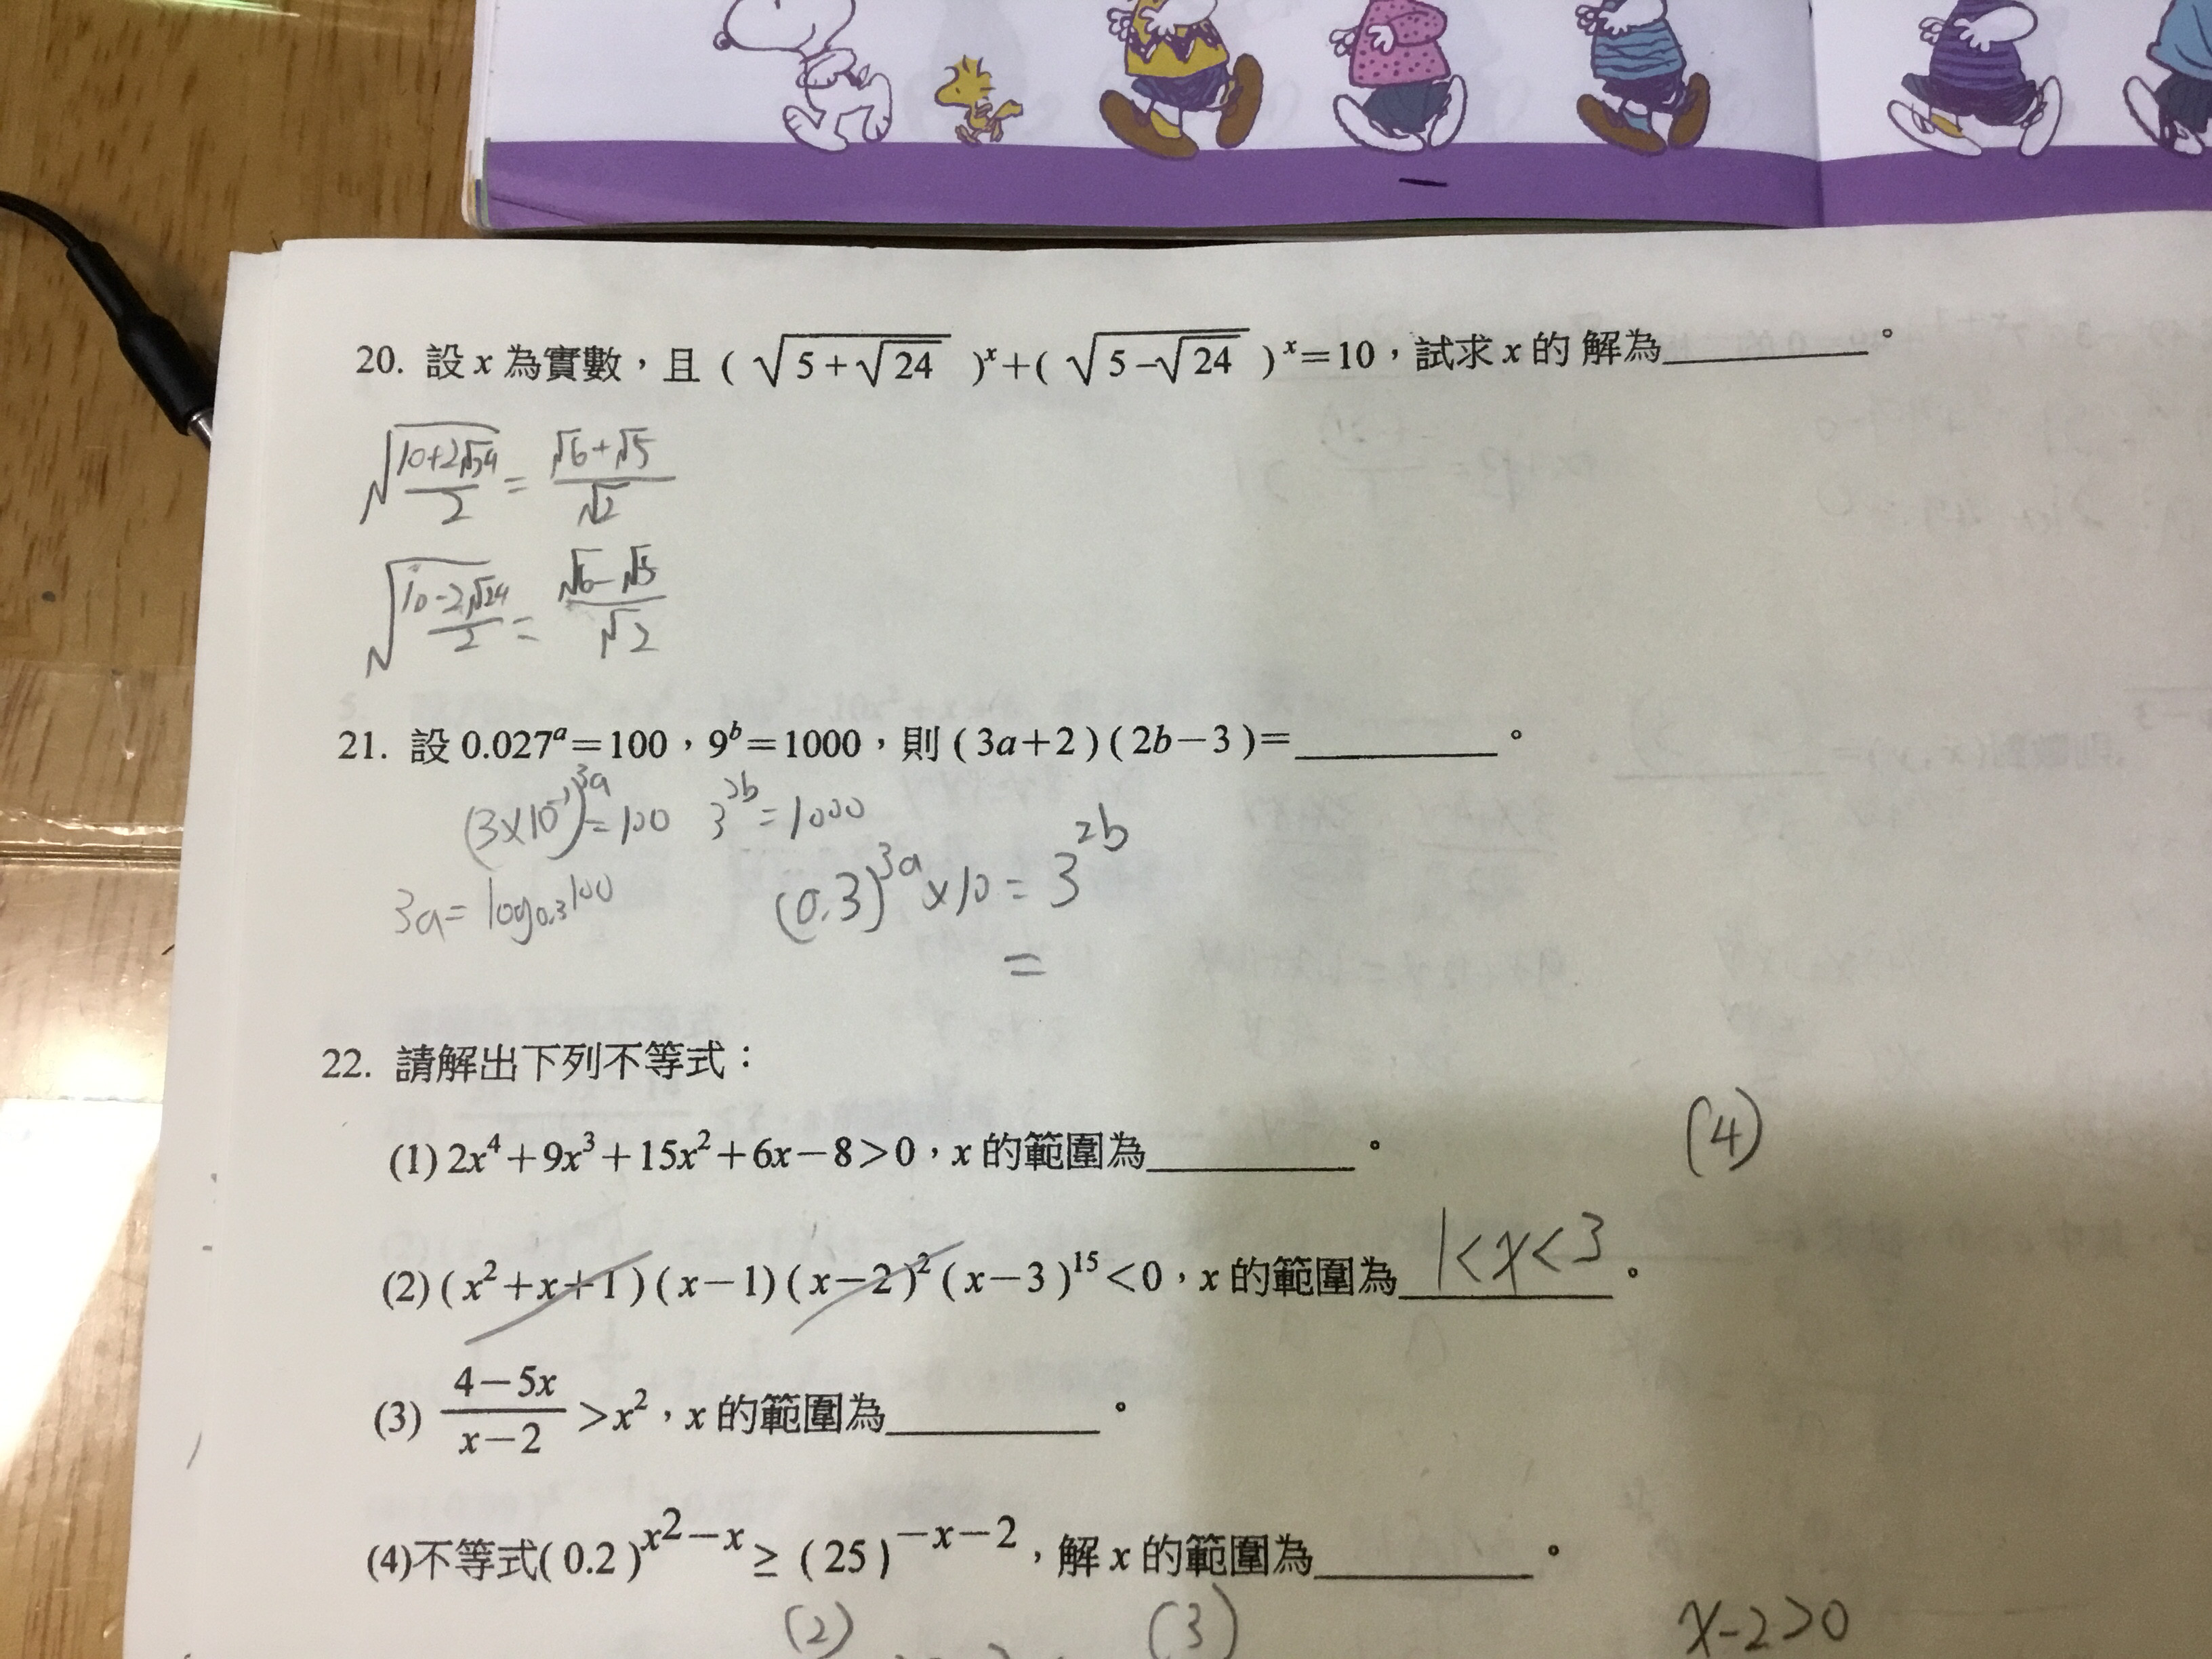 20. 設 x 為實數，且 ( √(5+√24) )^x+( √(5-√24) )^x=10，試求 x 的 解為________。
√((10+2√24)/2) = (√6+√5)/√2
√((10-2√24)/2) = (√6-√5)/√2
21. 設 0.027^a=100，9^b=1000，則 (3a+2)(2b-3)=________。
(3×10^-1)^3a=100 3^2b=1000
3a=log_0.3 100 (0.3)^3a×10=3^2b
=
22. 請解出下列不等式：
(4)
(1) 2x^4+9x^3+15x^2+6x-8>0，x 的範圍為________。
(2) (x^2+x+1)(x-1)(x-2)^2(x-3)^15<0，x 的範圍為 1<x<3 。
(3) (4-5x)/(x-2) >x^2，x 的範圍為________。
(4)不等式(0.2)^(x2-x) ≥ (25)^(-x-2)，解 x 的範圍為________。
(2) (3) x-2>0